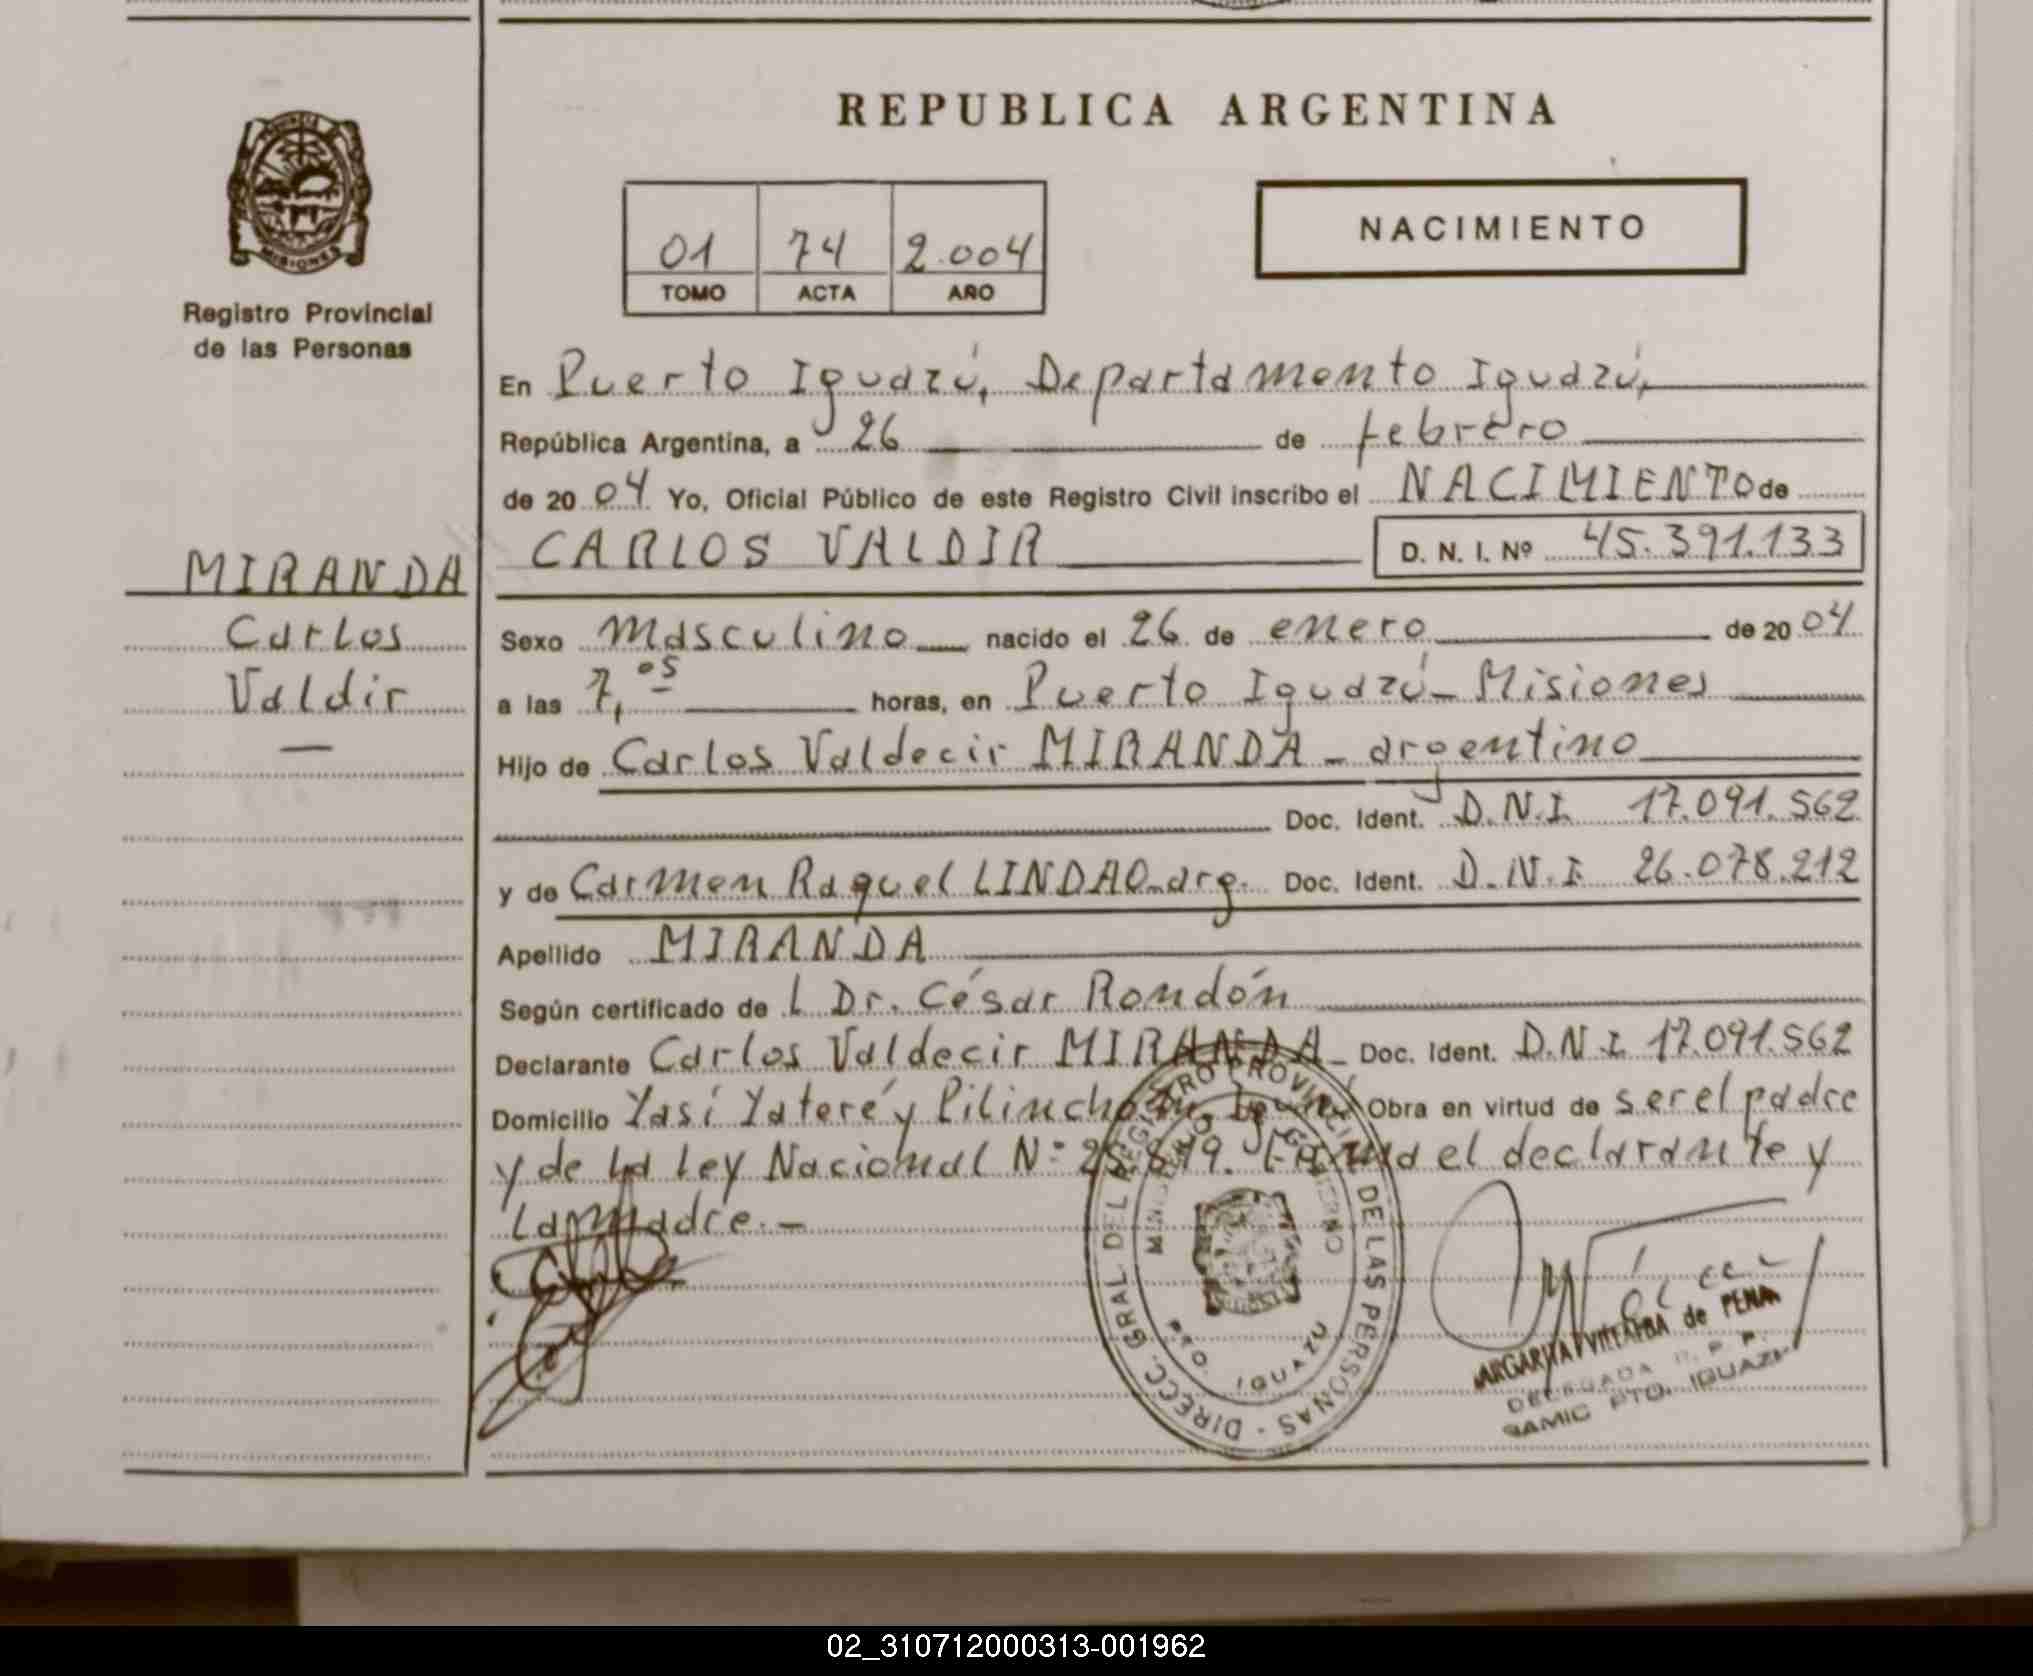 REPUBLICA ARGENTINA
MISIONES
Registro Provincial
de las Personas
01 74 2.004
TOMO ACTA AÑO
NACIMIENTO
En Puerto Iguazú, Departamento Iguazú,
República Argentina, a 26 de febrero
de 2004 Yo, Oficial Público de este Registro Civil inscribo el NACIMIENTO de
CARLOS VALDIR D. N. I. Nº 45.391.133
MIRANDA
Carlos
Valdir
Sexo masculino nacido el 26 de enero de 2004
a las 7,05 horas, en Puerto Iguazú - Misiones
Hijo de Carlos Valdecir MIRANDA - argentino
Doc. Ident. D.N.I. 17.091.562
y de Carmen Raquel LINDAO - arg. Doc. Ident. D.N.I. 26.078.212
Apellido MIRANDA
Según certificado de L Dr. César Rondón
Declarante Carlos Valdecir MIRANDA - Doc. Ident. D.N.I. 17.091.562
Domicilio Yasí Yateré y Pilincho Obra en virtud de ser el padre
y de la Ley Nacional Nº 25.819. Firma el declarante y
la madre. -
DIRECC. GRAL DEL REGISTRO PROVINCIAL DE LAS PERSONAS -
MINISTERIO DE GOBIERNO
PTO. IGUAZU
MARGARITA VILLALBA de PENA
DELEGADA R. P. P.
SAMIC PTO. IGUAZU
02_310712000313-001962